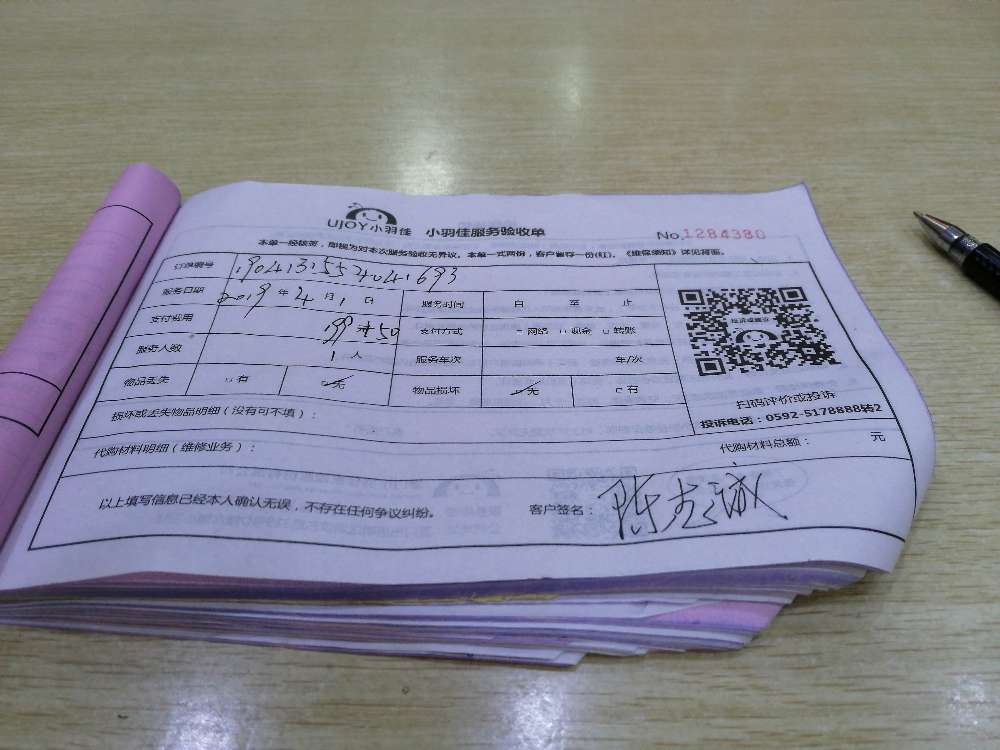 UJOY小羽佳 小羽佳服务验收单
No.1284380
本单一经核签，即视为对本次服务验收无异议。本单一式两份，客户留存一份(红)。《维保须知》详见背面。
订单编号
服务日期 2019年4月1日 服务时间 自 至 止
支付费用 99+50 支付方式 网络 现金 转账
服务人数 1人 服务车次 车/次
物品丢失 有 无 物品损坏 无 有
扫码评价或投诉
投诉电话：0592-5178888转2
损坏或丢失物品明细（没有可不填）：
代购材料明细（维修业务）： 代购材料总额： 元
以上填写信息已经本人确认无误，不存在任何争议纠纷。 客户签名：